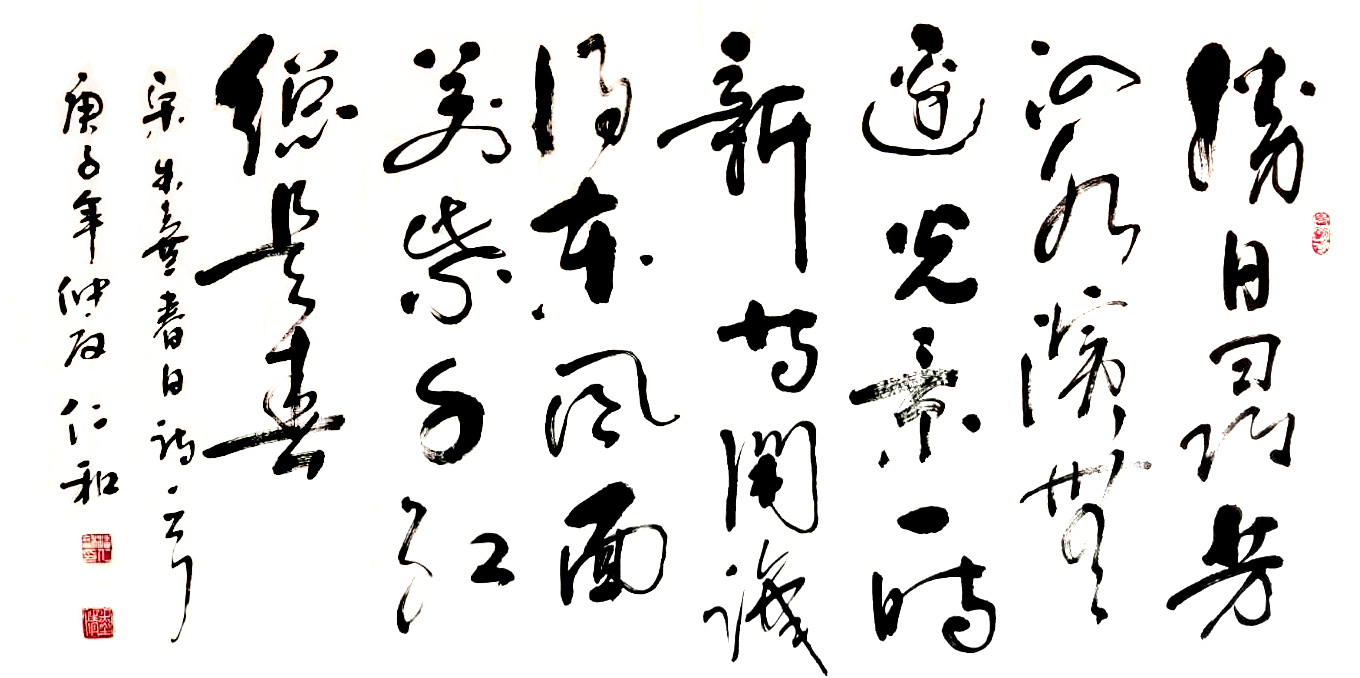 勝日尋芳
泗水濱無
邊光景一時
新等閒識
得東風面
萬紫千紅
總是春
宋朱熹春日詩一首
庚子年仲夏仁和